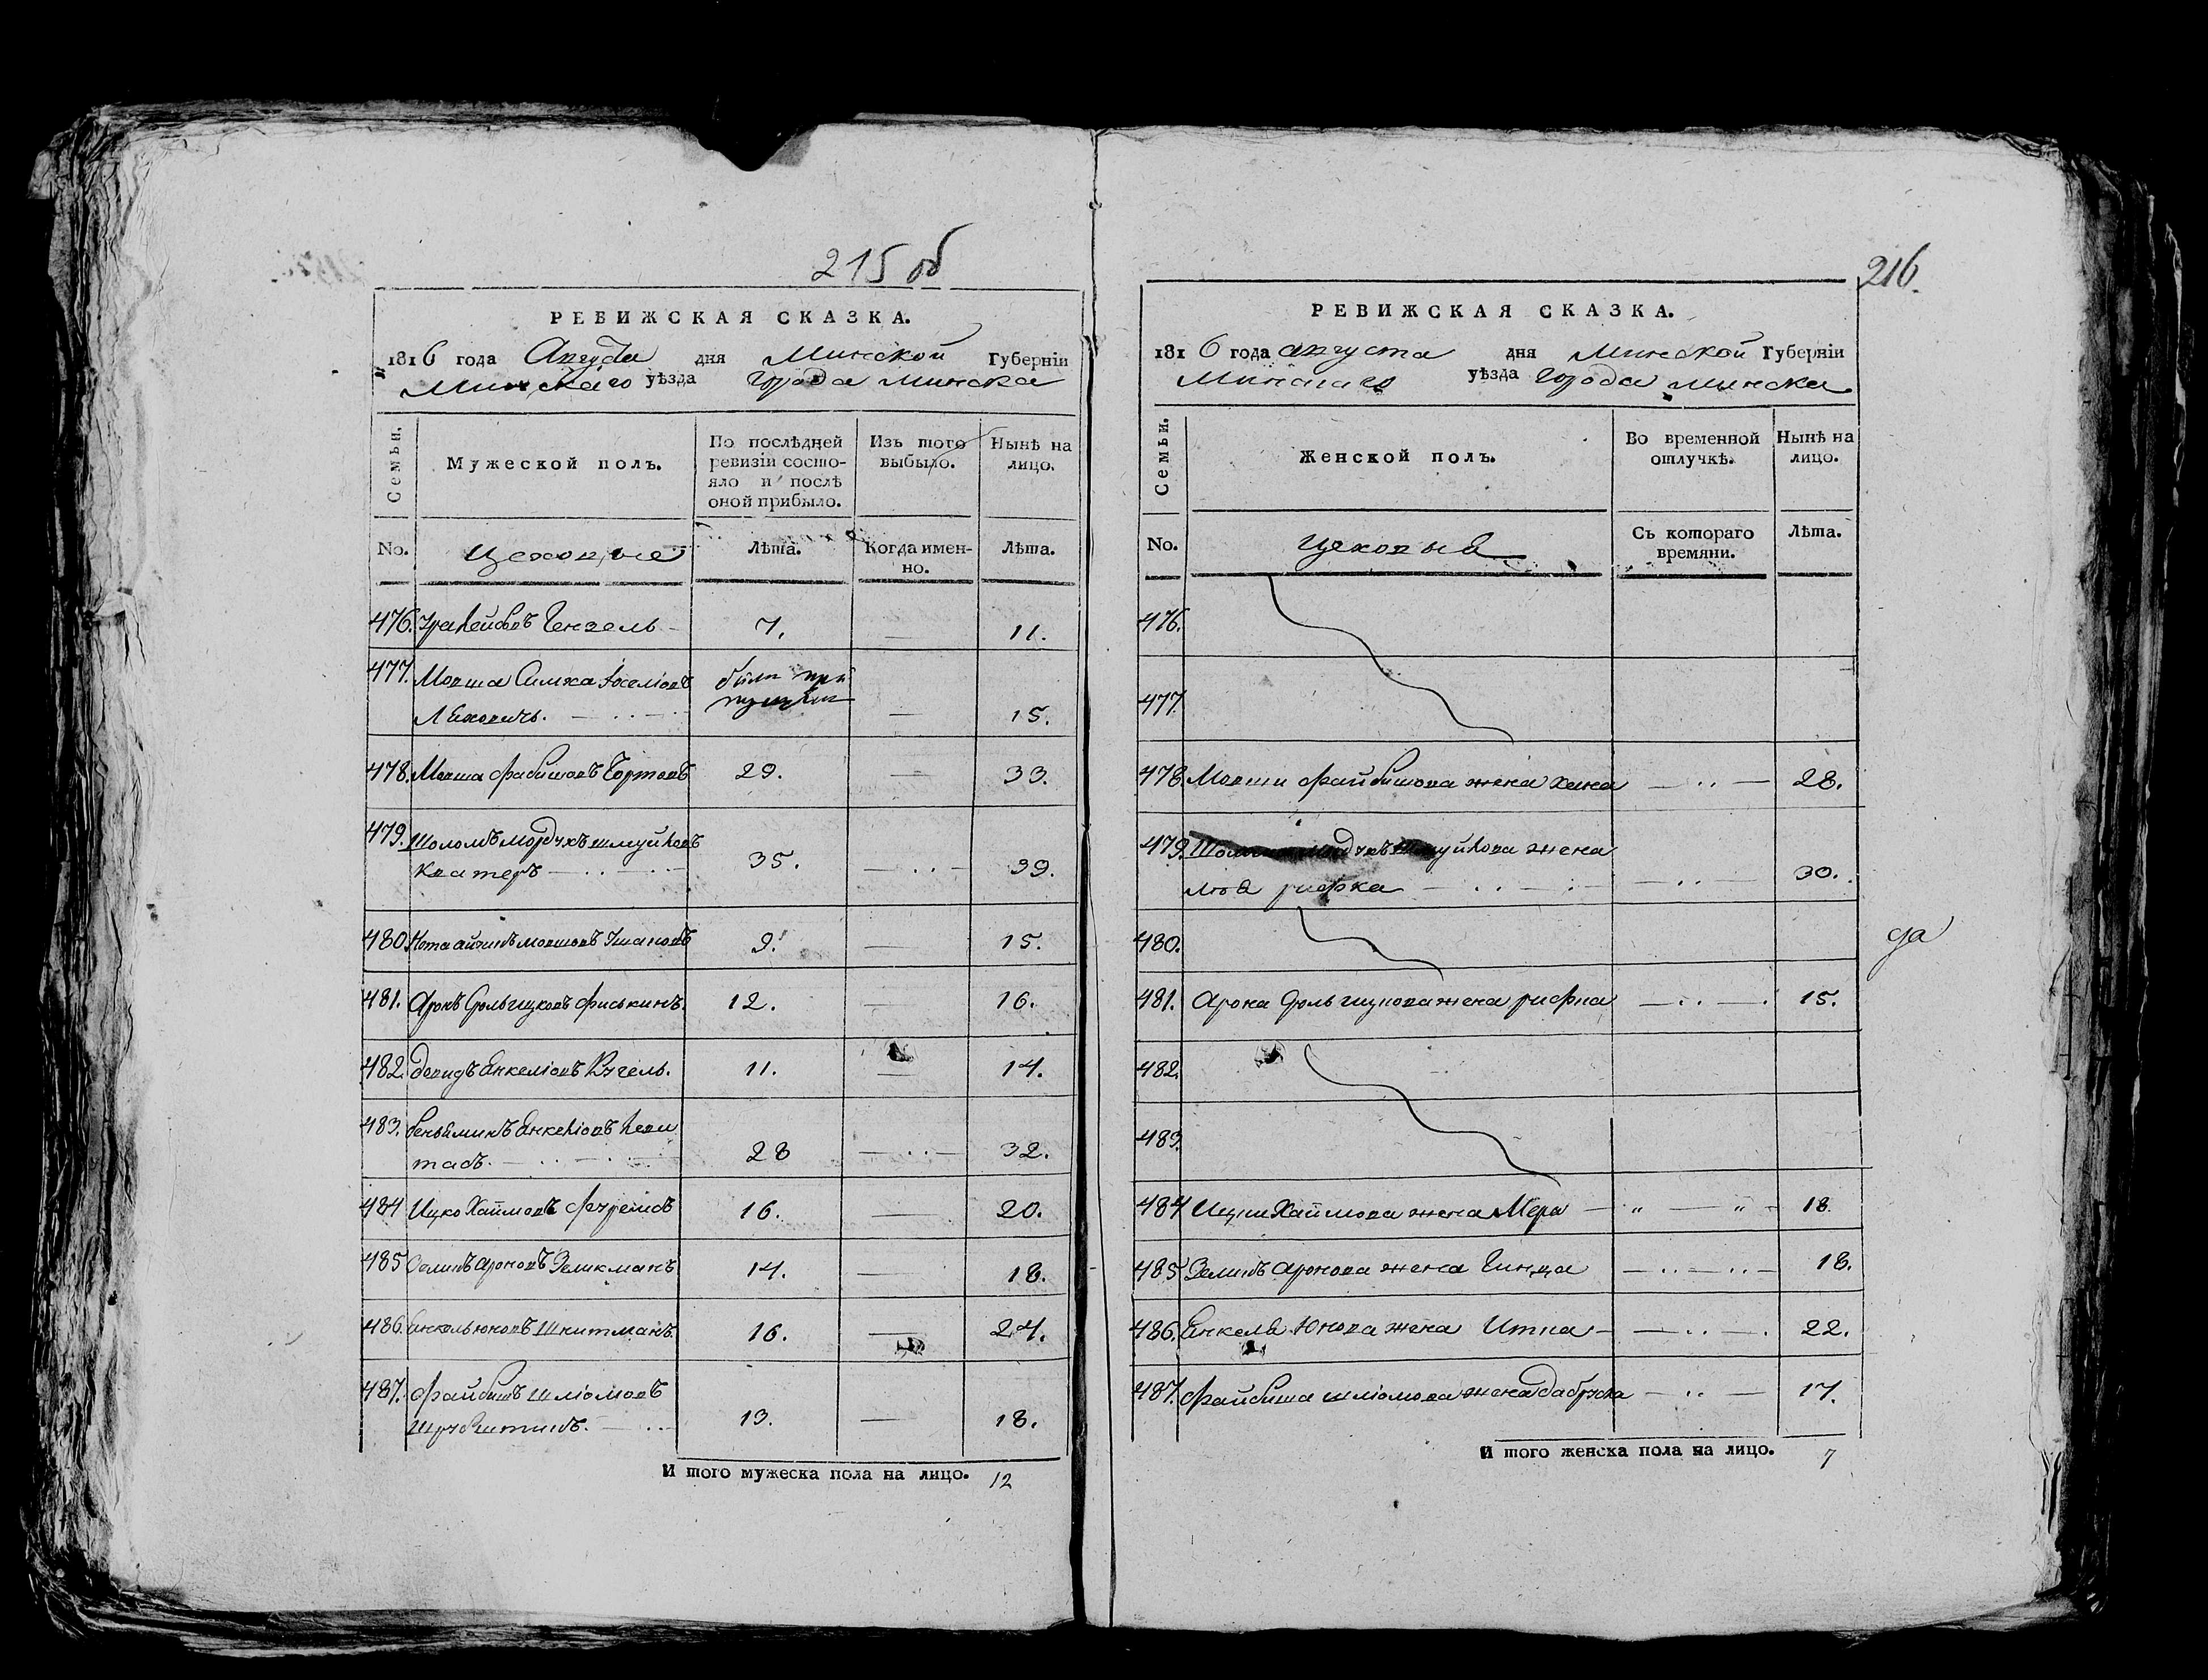 215 об
РЕВИЖСКАЯ СКАЗКА.
1816 года Августа дня Минской Губерніи
Минскаго уѣзда Города Минска
Семьи.
Мужеской полъ.
По послѣдней ревизіи состо-
яло и послѣ
оной прибыло.
Изъ того выбыло.
Нынѣ на лицо.
No.
Цеховые
Лѣта.
Когда имен-
но.
Лѣта.
476. Гензель 7. — 11.
477. Мовша Симха Іоселіовъ
Лѣховичъ. — 15.
478. Мовша Фабишовъ Гортовъ 29. — 33.
479. Шоломъ Мордухъ Шмуйловъ
Кватеръ 35. — 39.
480. Мовшовъ 9. — 15.
481. Аронъ Сроль Ицковъ Фиськинъ. 12. — 16.
482. Довидъ Енкеліовъ Кугель. 11. — 14.
483. Беньяминъ Енкеліовъ Леви
тасъ. 28 — 32.
484 Ицко Хаимовъ 16. — 20.
485 Зеликъ Ароновъ Зеликманъ 14. — 18.
486. Енкель Юновъ Шкитманъ. 16. — 24.
487. Файбишъ Шліомовъ
13. — 18.
И того мужеска пола на лицо. 12
216.
РЕВИЖСКАЯ СКАЗКА.
1816 года Августа дня Минской Губерніи
Минскаго уѣзда Города Минска
Семьи.
Женской полъ.
Во временной отлучкѣ.
Нынѣ на лицо.
No.
Цеховыя
Съ котораго
времяни.
Лѣта.
476.
477.
478. Мовши Файбишова жена Хана — 28.
479. Шмуйлова жена
Рифка — 30.
480.
да
481. Арона Сроль Ицкова жена Рифка — 15.
482.
483.
484 Ицки Хаимова жена Мера — 18.
485 Зелика Аронова жена Гинда — 18.
486. Енкеля Юнова жена Итка — 22.
487. Файбиша Шліомова жена Добруска — 17.
И того женска пола на лицо. 7